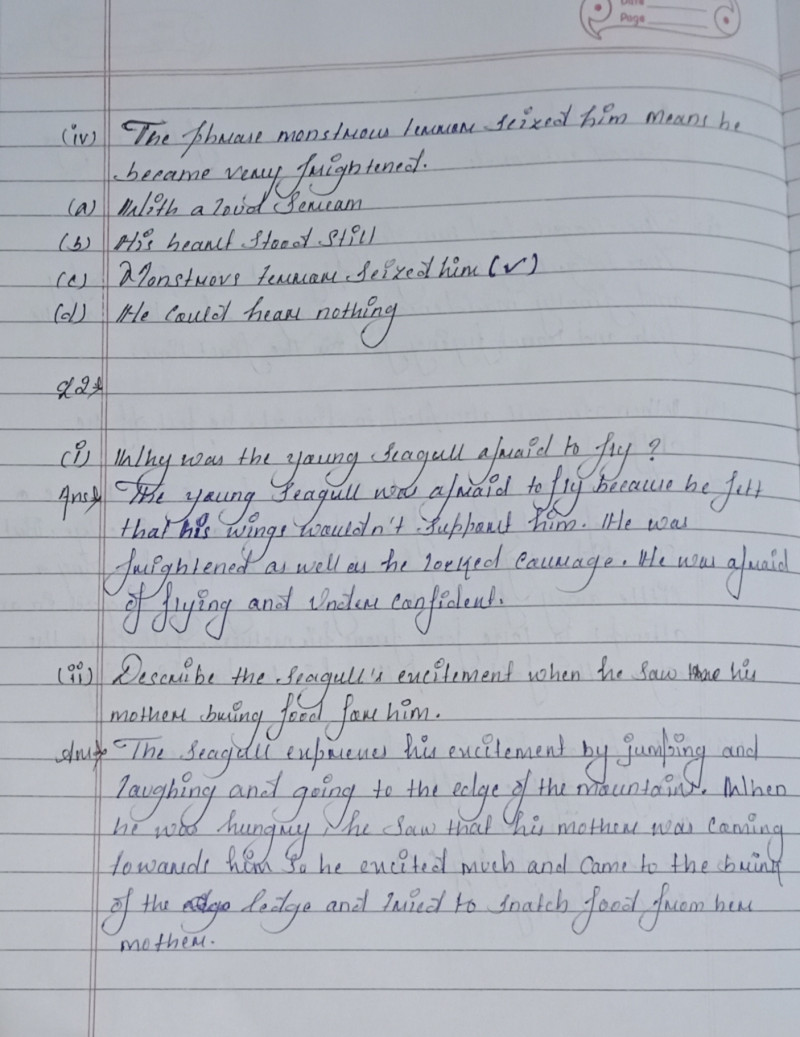 Date
Page
(iv) The phrase monstrous terror seized him means he
became very frightened.
(a) With a loud scream
(b) His heart stood still
(c) Monstrous terror seized him (✓)
(d) He could hear nothing
Q2→
(i) Why was the young seagull afraid to fly?
Ans→ The young seagull was afraid to fly because he felt
that his wings wouldn't support him. He was
frightened as well as he locked courage. He was afraid
of flying and under confident.
(ii) Describe the seagull's excitement when he saw his
mother bring food for him.
Ans→ The seagull express his excitement by jumping and
laughing and going to the edge of the mountains. When
he was hungry, he saw that his mother was coming
towards him so he excited much and came to the brink
of the ledge and tried to snatch food from her
mother.